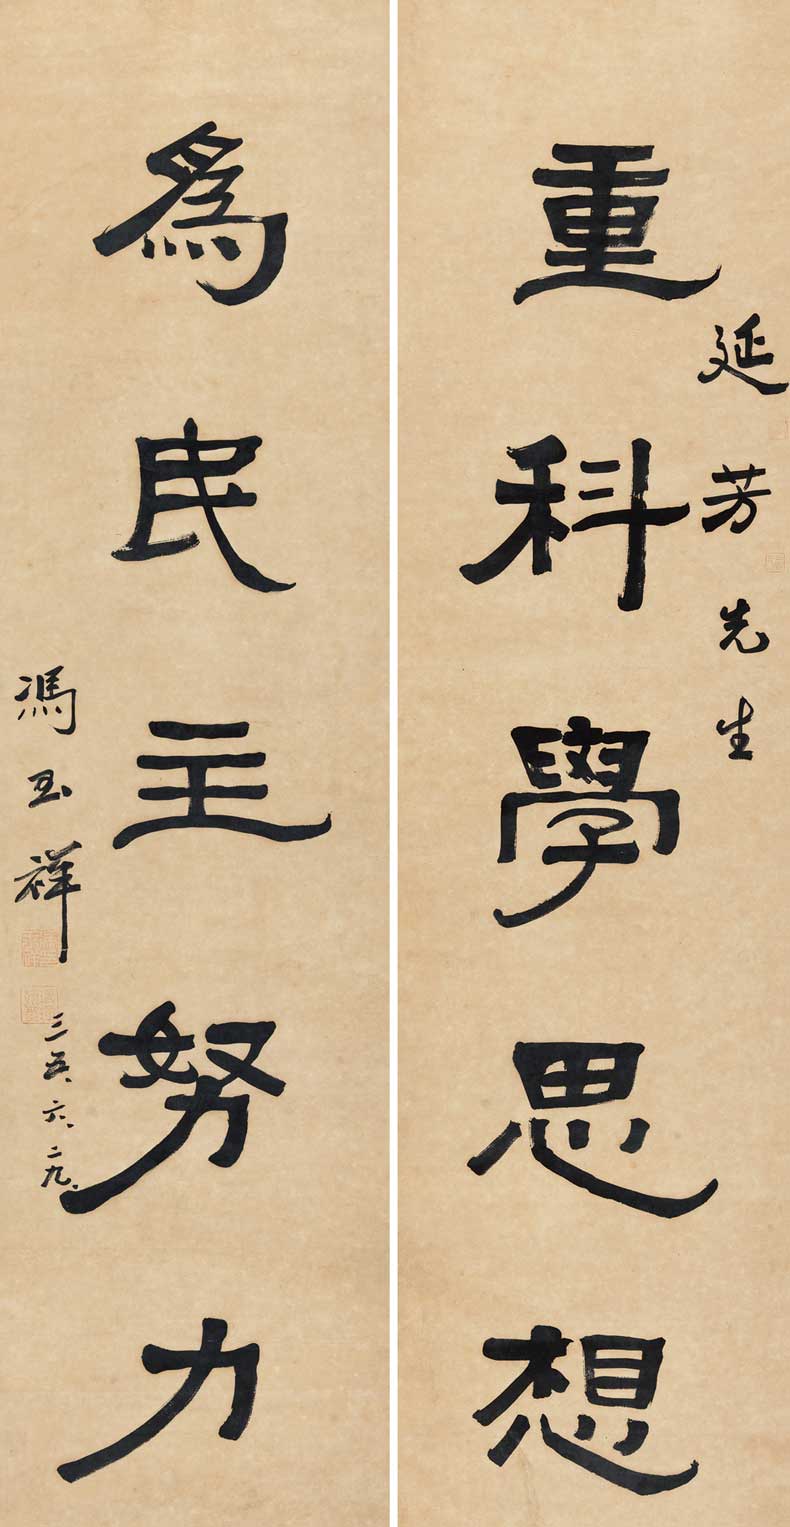 重科學思想
延芳先生
為民主努力
馮玉祥
三五、六、二九、